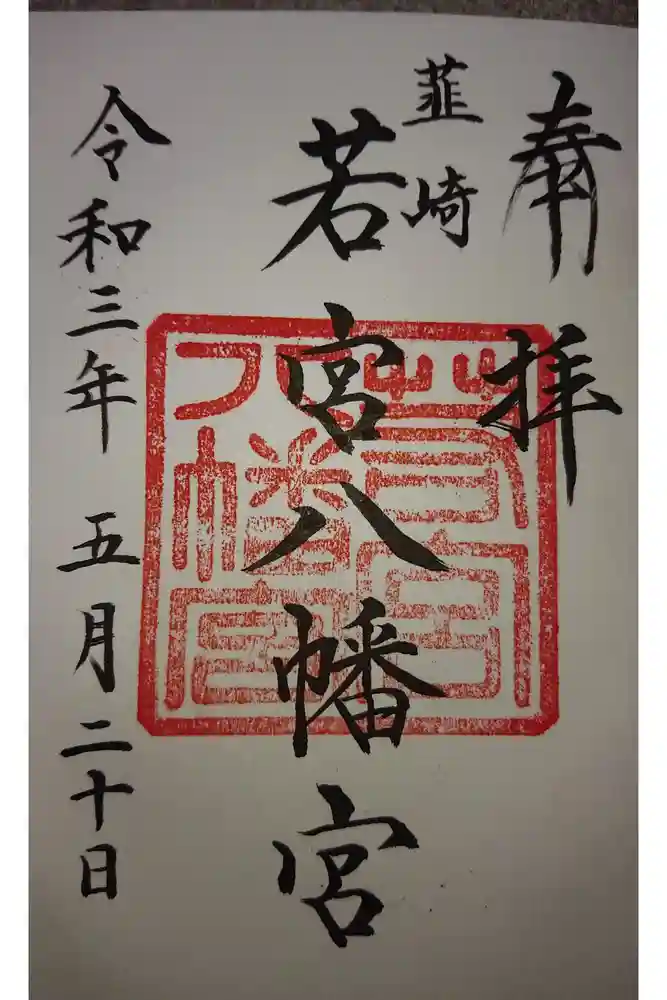 奉拝
韮崎
若宮八幡宮
若宮
八幡宮
令和三年 五月二十日